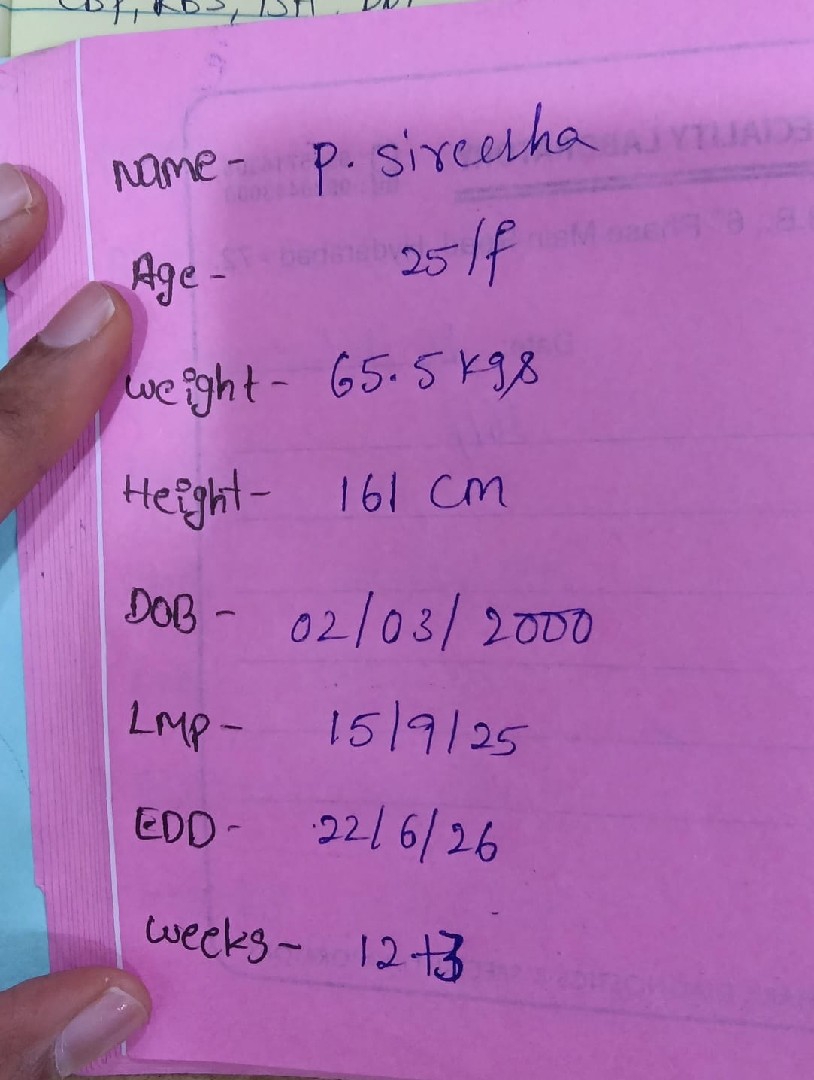 Name - P. Sireesha
Age - 25/F
Weight - 65.5 kgs
Height - 161 cm
DOB - 02/03/2000
LMP - 15/9/25
EDD - 22/6/26
Weeks - 12+3